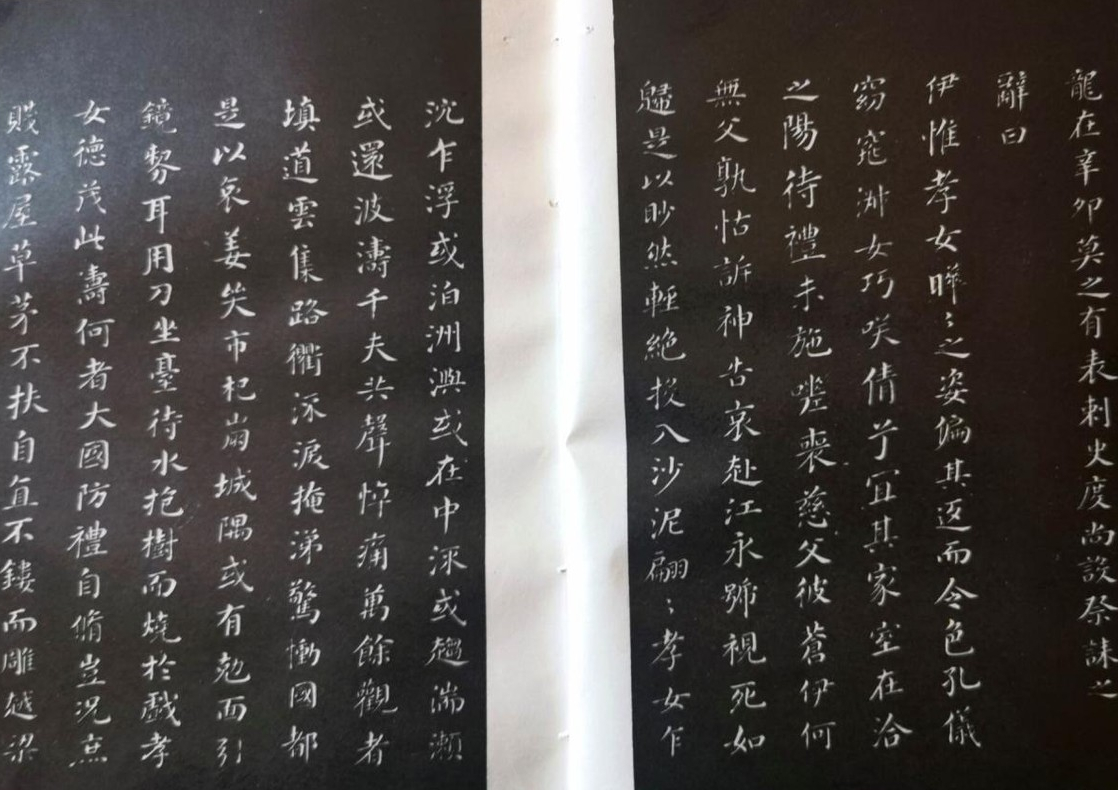 龍在辛卯莫之有表刺史度尚設祭誄之
辭曰
伊惟孝女曄〻之姿偏其返而令色孔儀
窈窕淑女巧咲倩兮宜其家室在洽
之陽待禮未施嗟喪慈父彼蒼伊何
無父孰怙訴神告哀赴江永號視死如
歸是以眇然輕絕投入沙泥翩〻孝女乍
沉乍浮或泊洲渚或在中流或趨湍瀨
或還波濤千夫共聲悼痛萬餘觀者
填道雲集路衢流淚掩涕驚慟國都
是以哀姜哭市杞崩城隅或有剋面引
鏡剺耳用刀坐臺待水抱樹而燒於戲孝
女德茂此儔何者大國防禮自脩豈況庶
賤露屋草茅不扶自直不鏤而雕越梁